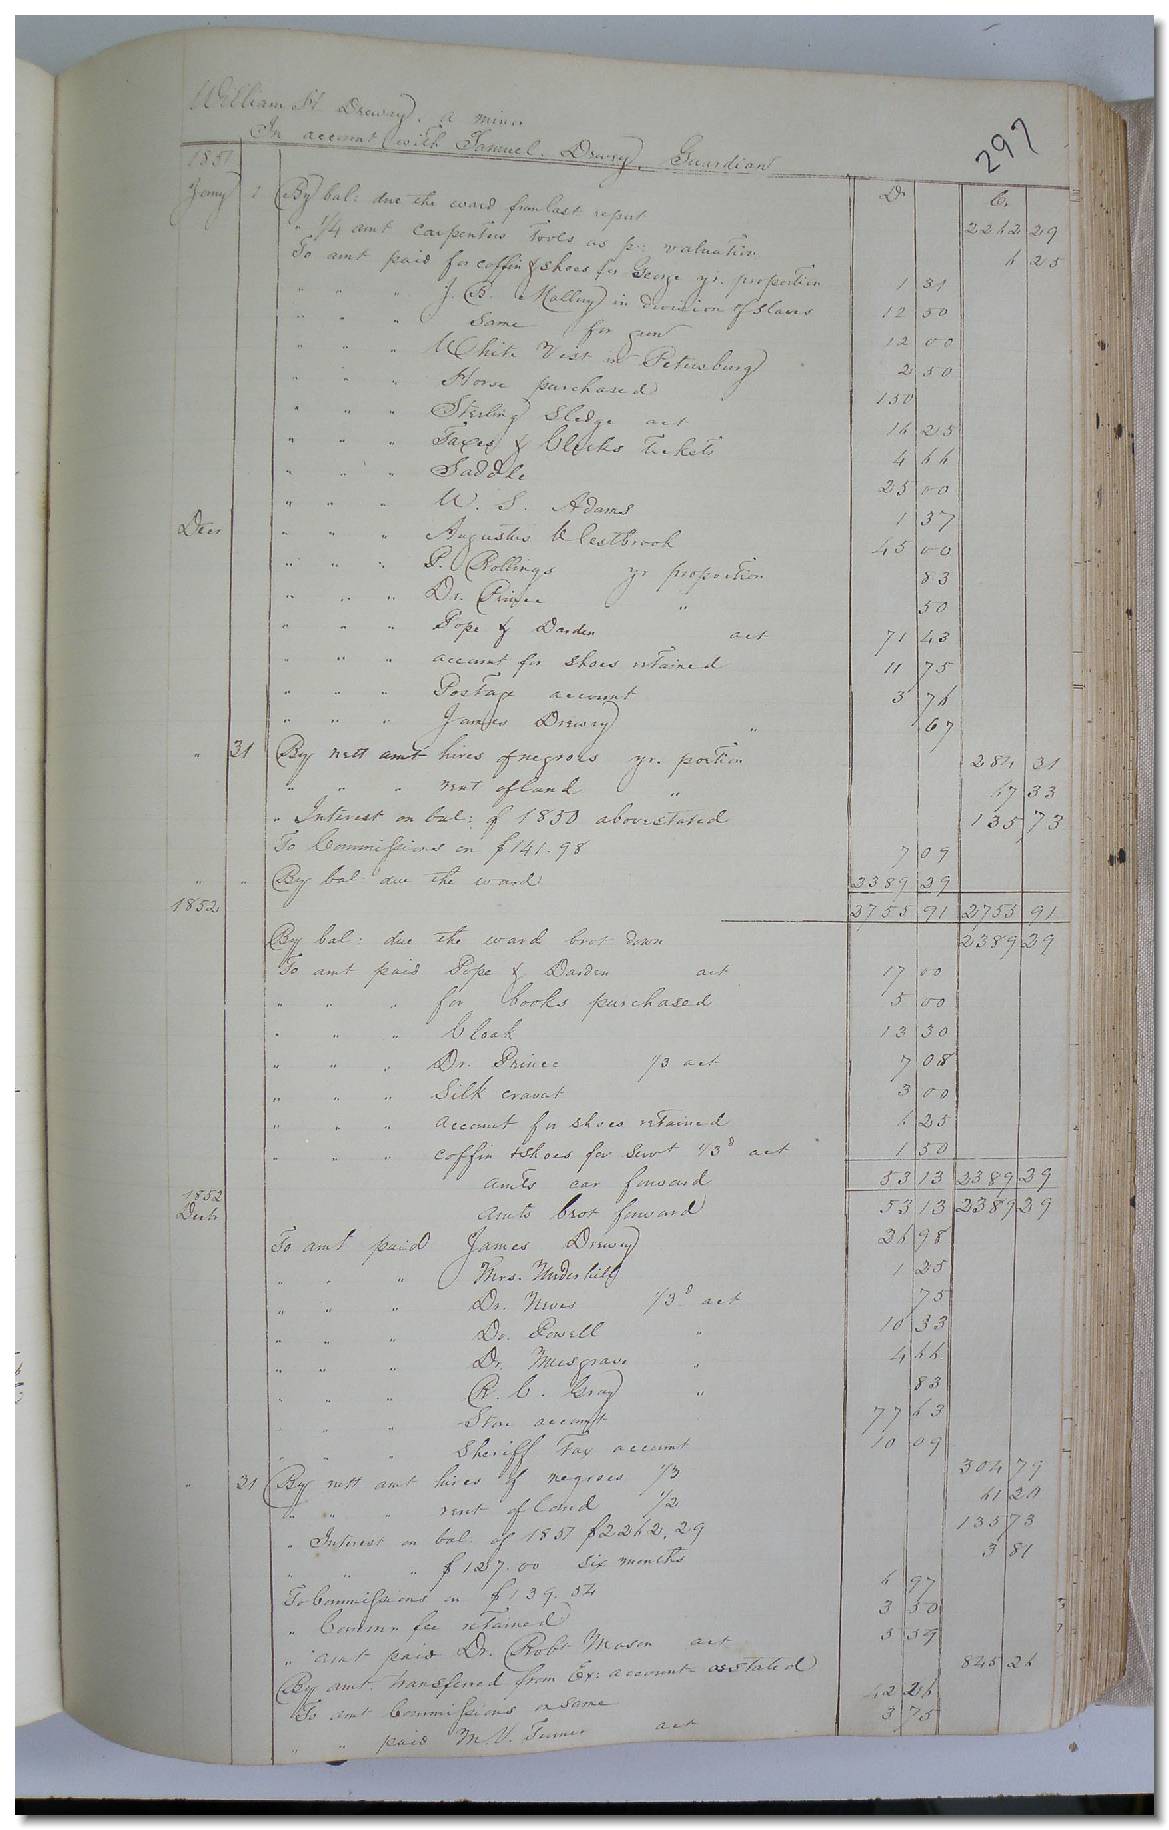 297
William H. Drewry, a minor
In account with Samuel Drewry, Guardian
1851 Dr Cr
Jany 1 By bal: due the ward from last report 2262 29
" 1/4 amt carpenters Tools as pr valuation 6 25
To amt paid for coffin & shoes for George yr. proportion 1 31
" " " J. B. Mallory in division of slaves 12 50
" " " Same for gun 12 00
" " " White Vest in Petersburg 2 50
" " " Horse purchased 150
" " " Sterling Sledge act 16 25
" " " Taxes & Clerks tickets 4 66
" " " Saddle 25 00
" " " W. S. Adams 1 37
Decr " " " Augustus Westbrook 45 00
" " " P. Rollings yr proportion 83
" " " Dr. Prince " 50
" " " Pope & Darden act 71 43
" " " account for shoes retained 11 75
" " " Postage account 3 76
" " " James Drewry " 67
" 31 By nett amt hires of negroes yr. portion 284 31
" " " rent of land " 67 33
" Interest on bal: of 1850 above stated 135 73
To Commissions on $141.98 7 09
" " By bal due the ward 2389 29
1852 2755 91 2755 91
By bal: due the ward brot down 2389 39
To amt paid Pope & Darden act 17 00
" " " for books purchased 5 00
" " " Cloak 13 30
" " " Dr. Prince 1/3 act 7 08
" " " Silk cravat 3 00
" " " account for shoes retained 6 25
" " " coffin & shoes for Servt 1/3d act 1 50
amts car forward 53 13 2389 39
1852
Decb amts brot forward 53 13 2389 39
To amt paid James Drewry 26 98
" " " Mrs. Underhill 1 25
" " " Dr. Nives 1/3d act 75
" " " Do. Powell " 10 33
" " " Dr. Musgrave " 4 66
" " " R. C. Gray " 83
" " Store account 77 63
" " " Sheriff Tax account 10 09
" 31 By nett amt hires of negroes 1/3 304 79
" " " rent of land 1/2 61 20
" Interest on bal. of 1851 $2262.29 135 73
" " " $127.00 six months 3 81
To Commissions on $139.54 6 97
" Commr fee retained 3 50
" amt paid Dr. Robt Mason act 5 59
By amt transfered from Ex: account as stated 845 26
To amt Commissions on same 42 26
" " paid M. V. Turner act 3 75